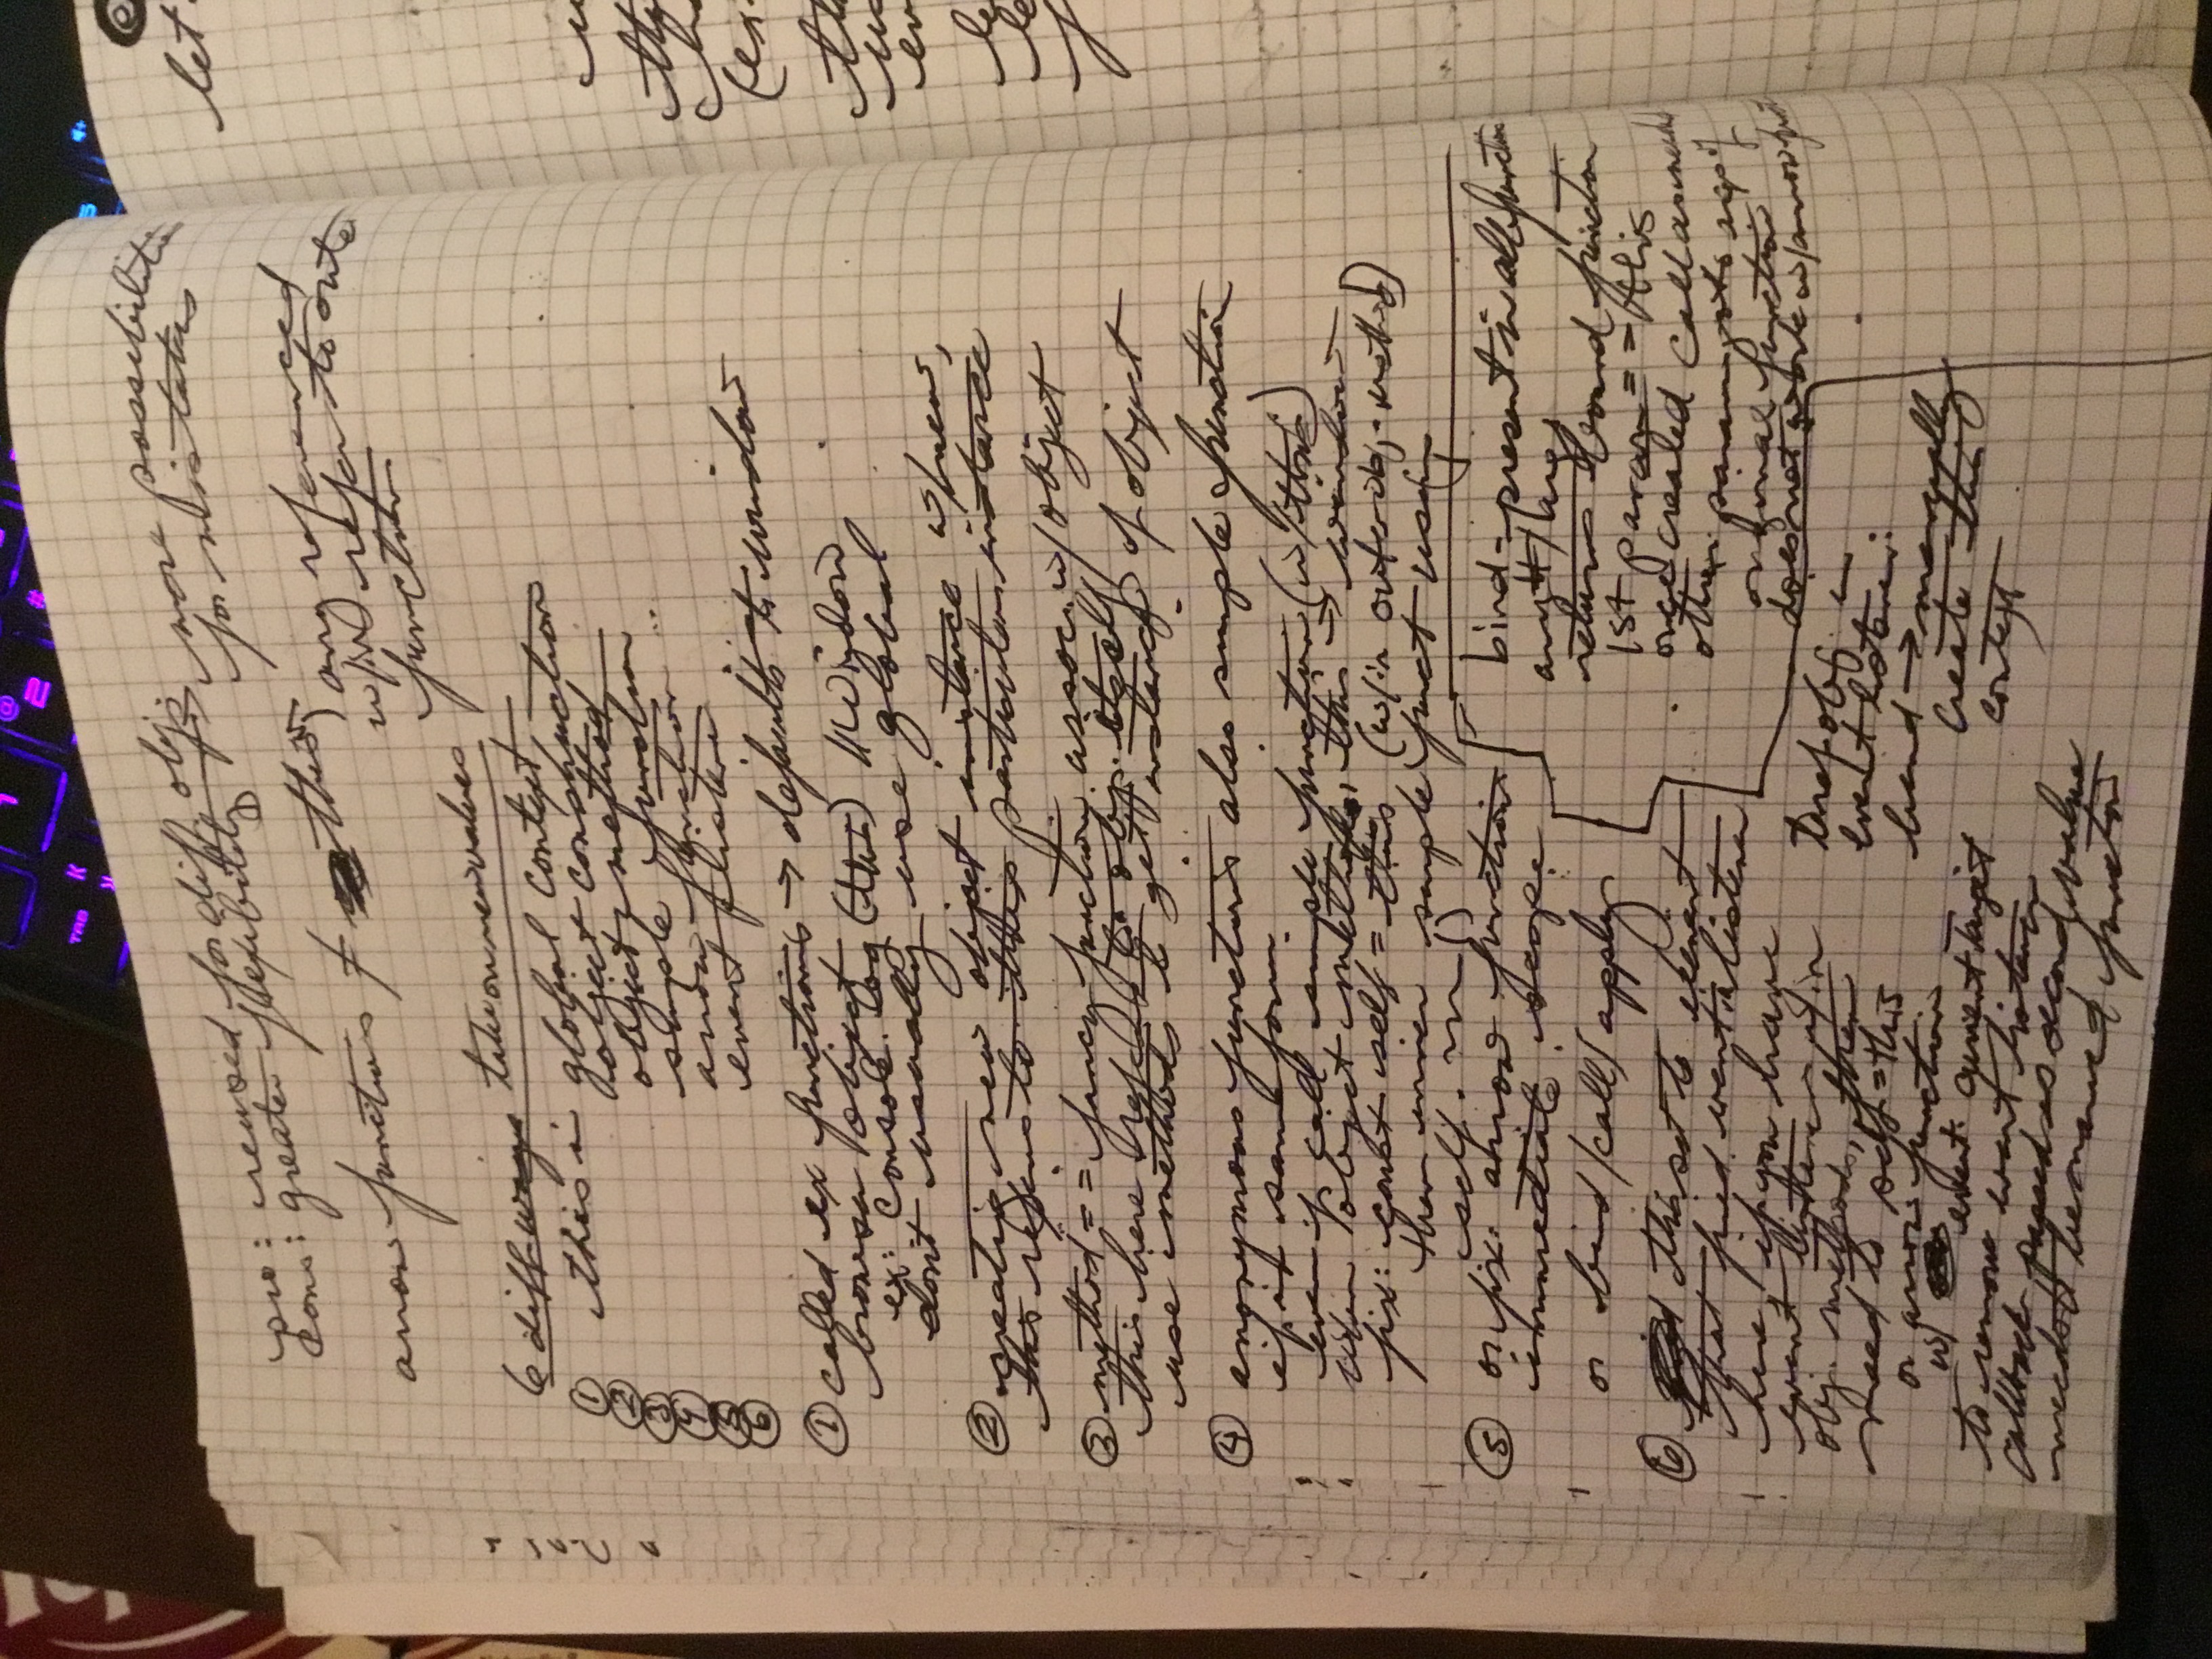 pro: reused for diff. obj.
cons: greater flexibility → more possibiliti
for mistakes
arrow functions ≠ "this", any referenced
w/in refer to oute
function
6 diff ways take on new values
① this in global context
② object construction
③ object method
④ simple function
⑤ arrow function
⑥ event listene
① called ex functions → defaults to window
browser object
ex: console.log(this) //Window
don't usually use global
② creating new object instance w/new,
this refers to this particular instance
③ method == fancy function assoc. w/ object
this here refers to obj. itself
use methods to get instance of object
④ anonymous functions also simple function
if in same form
even if call simple function (w/this)
w/in object method, this → window
fix: const self = this (w/in outer obj. method)
then inner simple funct using
self. ()
⑤ or fix: arrow function
immediate scope
or bind/call/apply
bind = present in all function
any # args
returns bound function
1st param == this
once created call as neede
other params to args of
original function
does not work w/arrow funct
⑥ this set to element
that fired event listener
here, if you have
event listener w/in
obj. methods, then
need to self = this
or arrow function
w/ event. currentTarget
to remove event listener
callback passed as second value
needs to be named function
to ref obj. in
event listener:
bind → manually
create this
context
let
(ex.